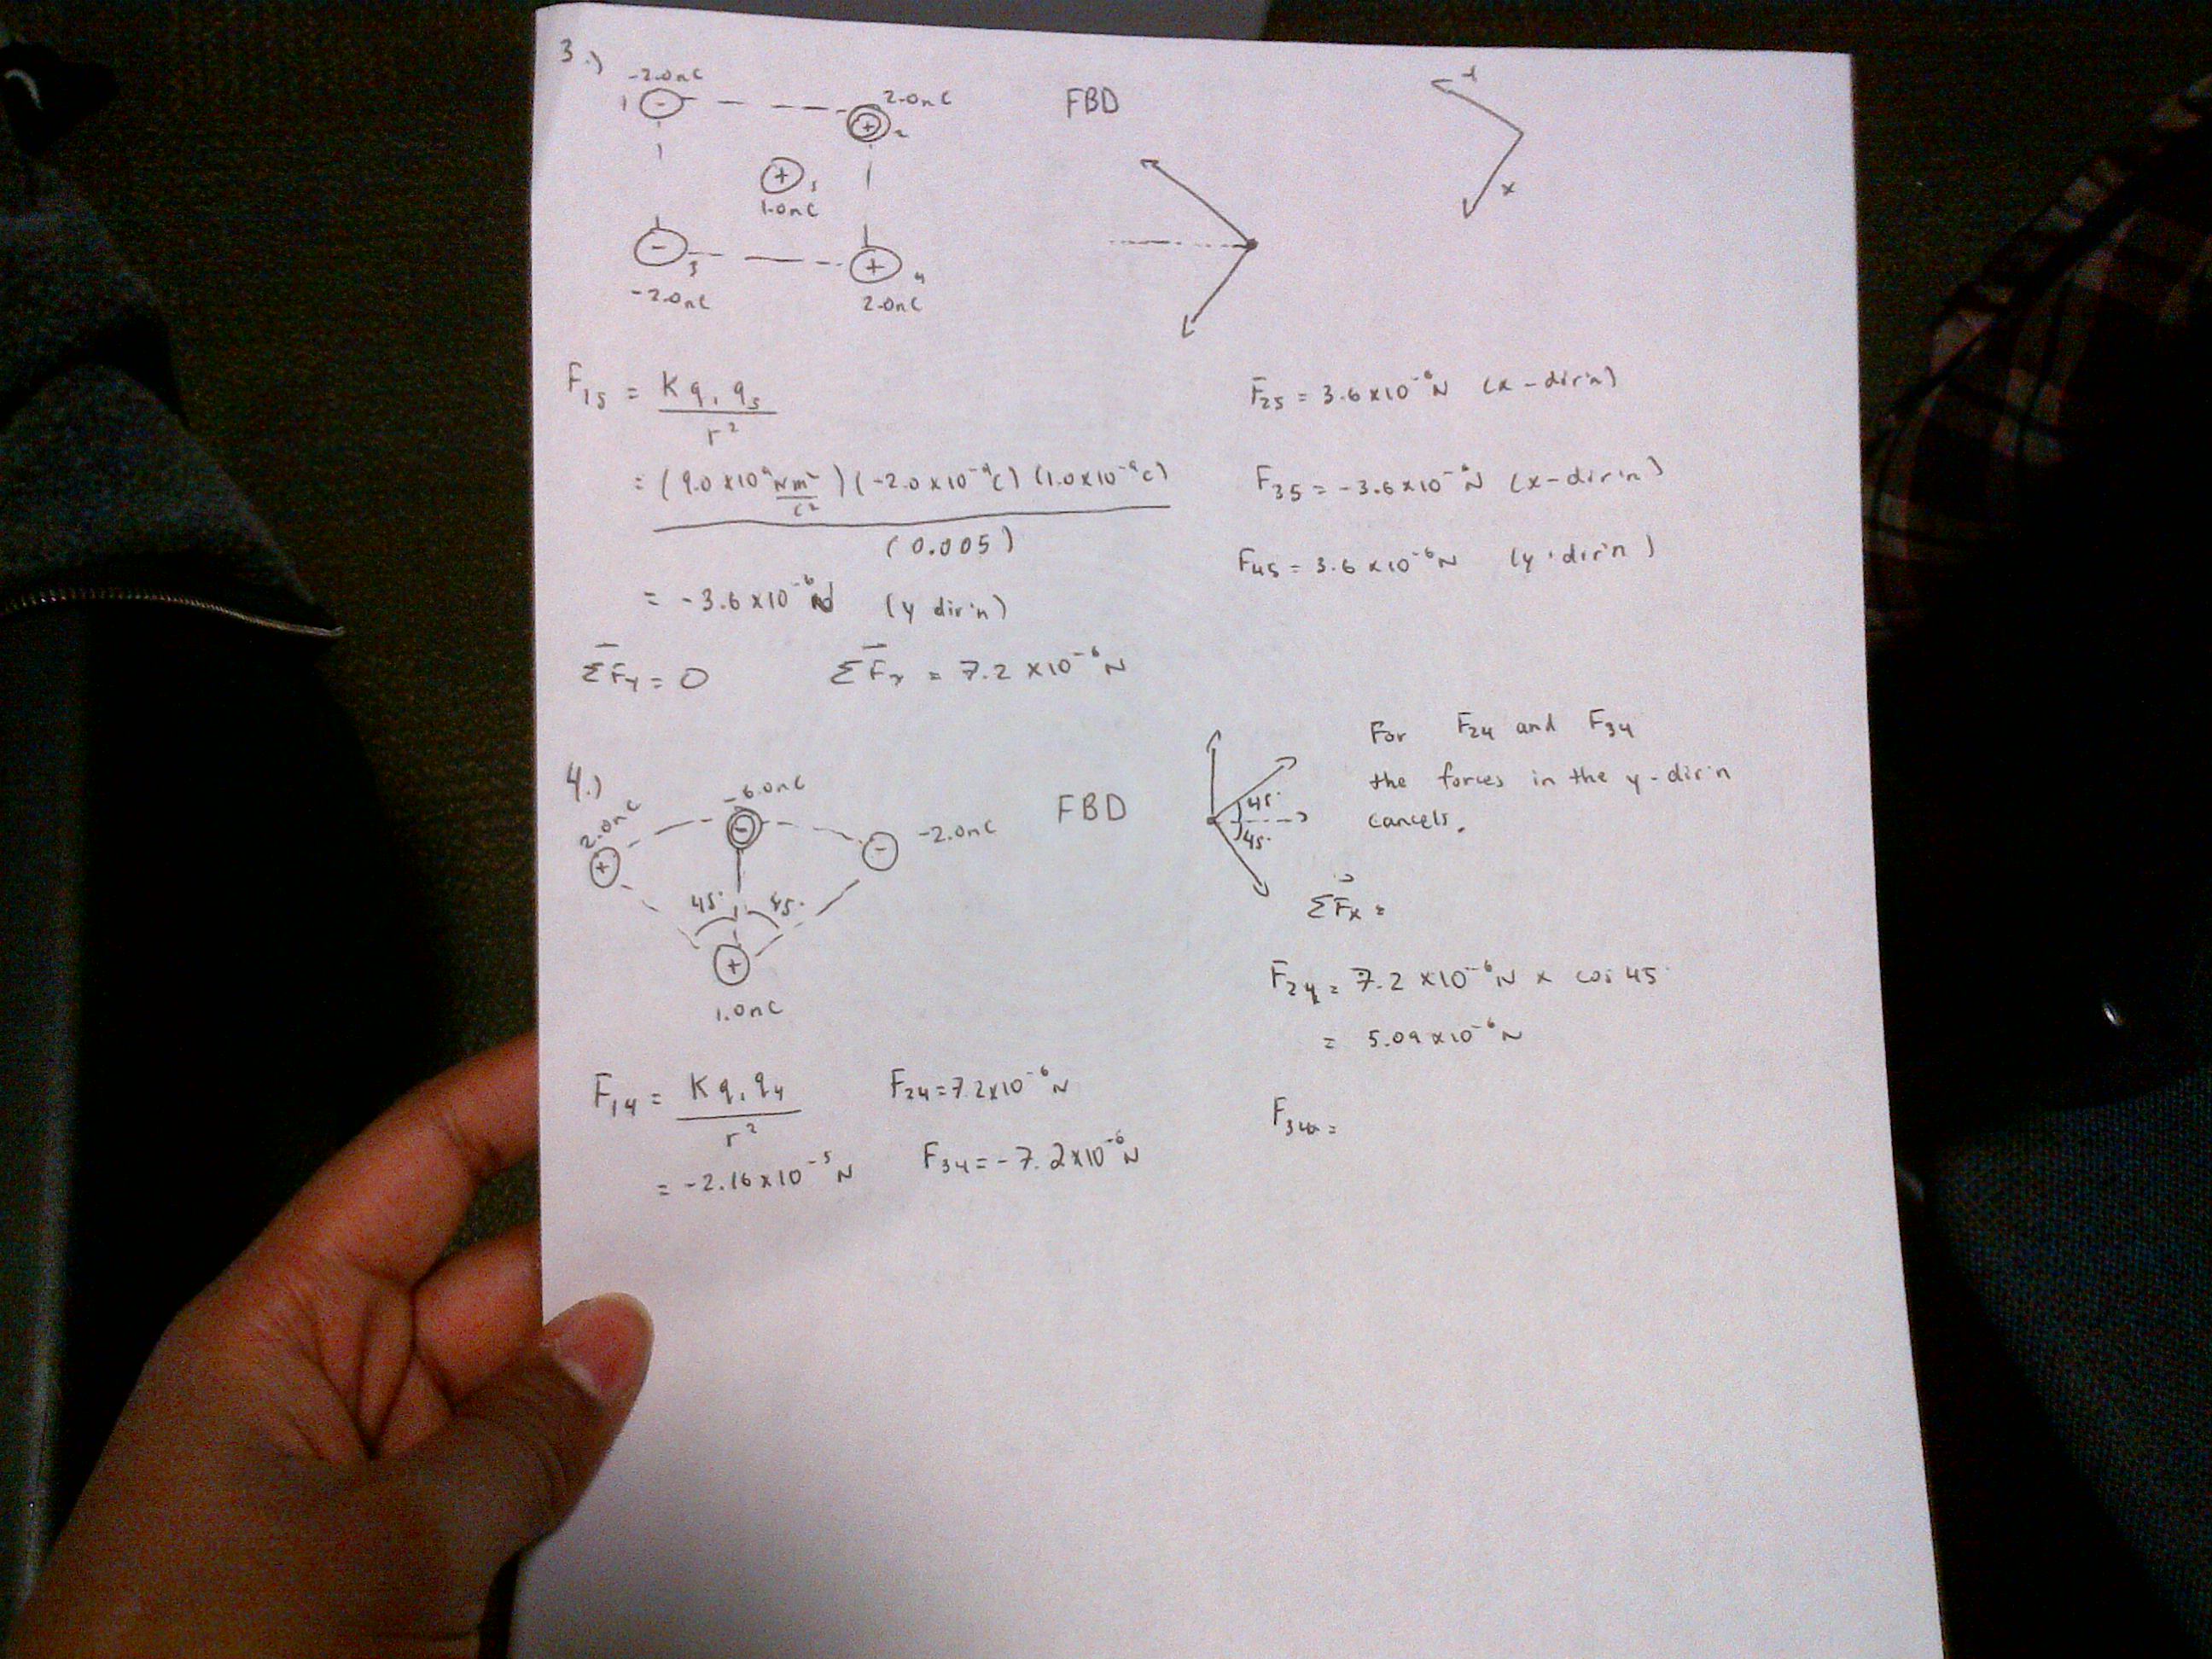 3.)
-2.0nC
1 -
2.0nC
+ 2
+ 5
1.0nC
- 3
-2.0nC
+ 4
2.0nC
FBD
x
F15 = K q1 q5 / r²
= (9.0 x10⁹ Nm²/C²) (-2.0 x10⁻⁹C) (1.0x10⁻⁹C) / (0.005)
= -3.6 x10⁻⁶ N (y dir'n)
F25 = 3.6 x10⁻⁶ N (x-dir'n)
F35 = -3.6x10⁻⁶ N (x-dir'n)
F45 = 3.6 x10⁻⁶ N (y-dir'n)
ΣFy = 0 ΣFx = 7.2 x10⁻⁶ N
4.)
2.0nC
+
-6.0nC
-
-2.0nC
-
45° 45°
+
1.0nC
FBD
45°
45°
For F24 and F34
the forces in the y-dir'n
cancels.
ΣFx =
F24 = 7.2 x10⁻⁶ N x cos 45°
= 5.09 x10⁻⁶ N
F34x =
F14 = K q1 q4 / r²
= -2.16 x10⁻⁵ N
F24 = 7.2x10⁻⁶ N
F34 = -7.2x10⁻⁶ N